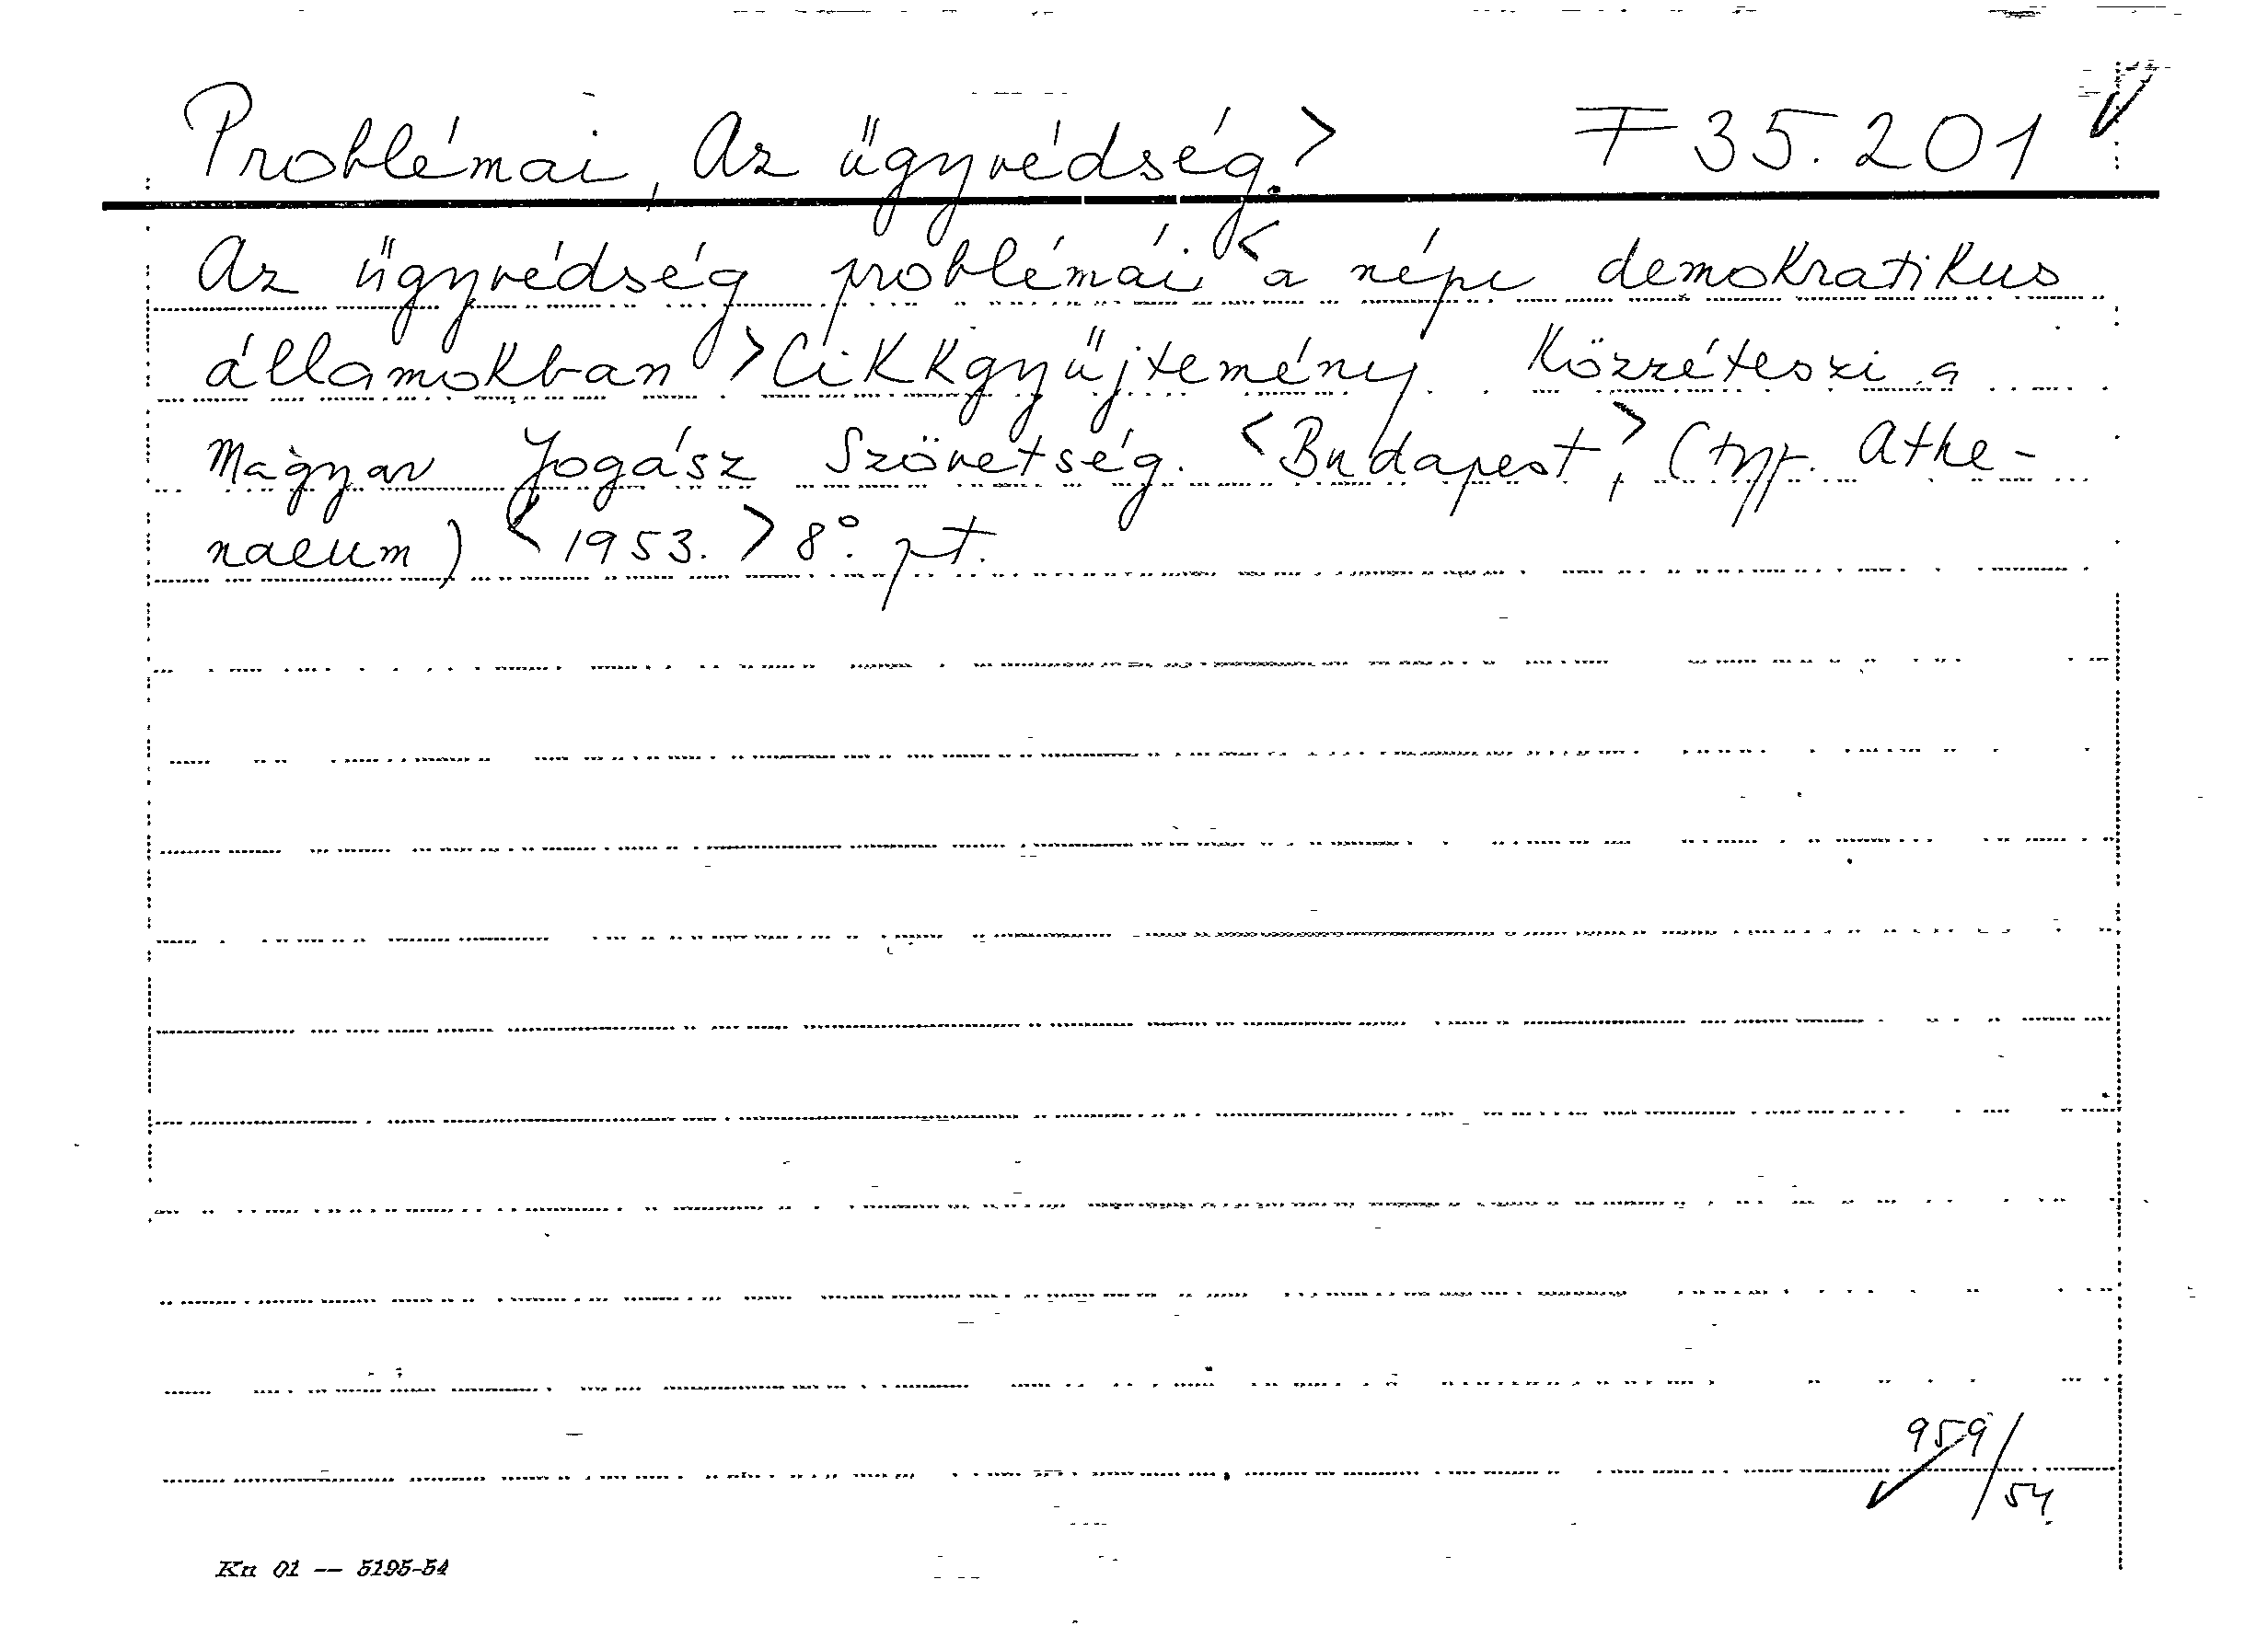 Problémai, Az ügyvédség.> F 35.201
Az ügyvédség problémái < a népi demokratikus
államokban > Cikkgyűjtemény. Közzéteszi a
Magyar Jogász Szövetség. <Budapest,> (typ. Athe-
naeum) < 1953. > 8°. pt.
959/54
Kn 01 -- 5195-54